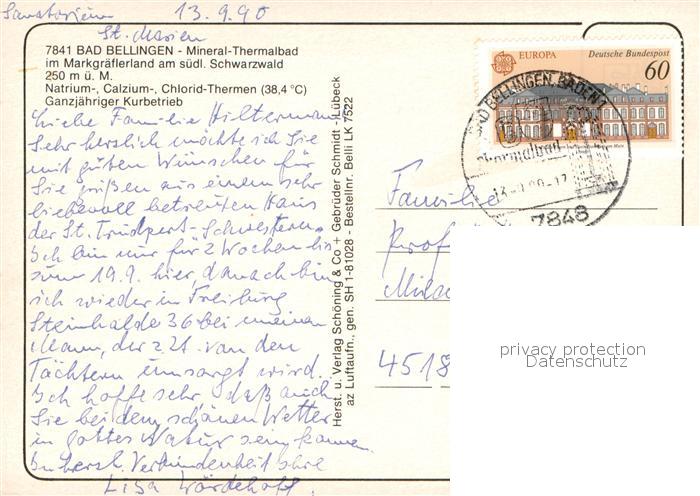 Sanatorium 13.9.90
St. Marien
7841 BAD BELLINGEN - Mineral-Thermalbad
im Markgräflerland am südl. Schwarzwald
250 m ü. M.
Natrium-, Calzium-, Chlorid-Thermen (38,4 °C)
Ganzjähriger Kurbetrieb
Liebe Familie Hilterman
Sehr herzlich möchte ich Sie
mit guten Wünschen für
Sie grüßen aus einem sehr
liebevoll betreuten Haus
der St. Trudpert-Schwestern.
Ich bin nur für 2 Wochen bis
zum 19.9. hier, danach bin
ich wieder in Freiburg
Steinhalde 36 bei meinem
Mann, der z.Zt. von den
Töchtern umsorgt wird.
Ich hoffe sehr, daß auch
Sie bei dem schönen Wetter
in Gottes Natur sein können.
In herzl. Verbundenheit Ihre
Lisa
Herst. u. Verlag Schöning & Co + Gebrüder Schmidt - Lübeck
az Luftaufn., gen. SH 1-81028 - Bestellnr. Belli LK 7522
EUROPA Deutsche Bundespost
60
BAD BELLINGEN, BADEN 1
Thermalbad
7848
Familie
Prof
4518
privacy protection
Datenschutz